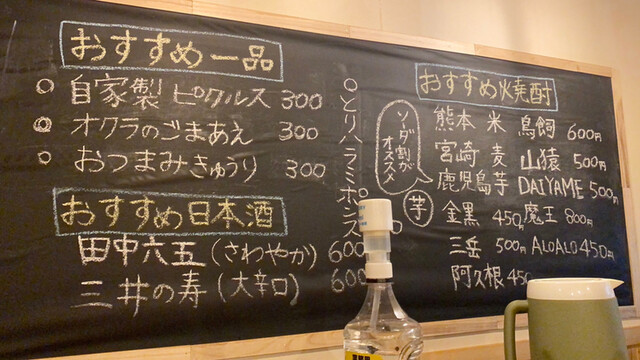 おすすめ一品
○ 自家製 ピクルス 300
◎ オクラのごまあえ 300
○ おつまみきゅうり 300
○ とりハラミポンズ
おすすめ日本酒
田中六五 (さわやか) 600
三井の寿 (大辛口) 600
おすすめ焼酎
ソーダ割が
オススメ
熊本 米 鳥飼 600円
宮崎 麦 山猿 500円
鹿児島芋 DAIYAME 500円
芋 金黒 450円 魔王 800円
三岳 500円 ALOALO 450円
阿久根 450